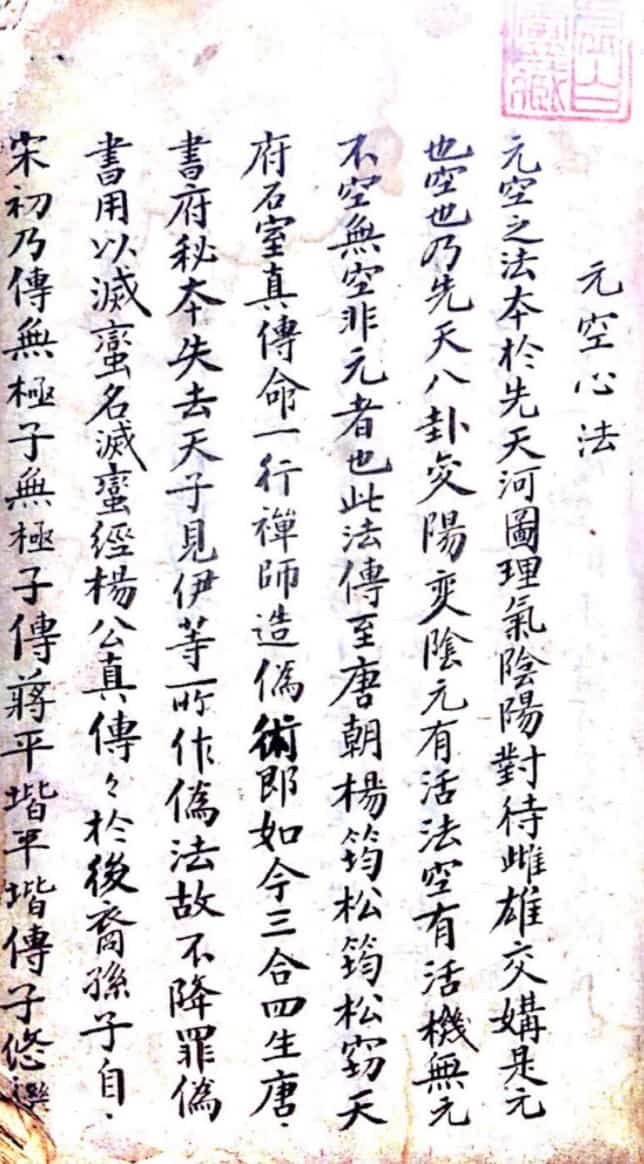 元空心法
元空之法本於先天河圖理氣陰陽對待雌雄交媾是元
也空也乃先天八卦変陽変陰元有活法空有活機無元
不空無空非元者也此法傳至唐朝楊筠松筠松竊天
府石室真傳命一行禪師造偽術即如今三合四生唐、
書府秘本失去天子見伊等所作偽法故不降罪偽
書用以滅蠻名滅蠻經楊公真傳々於後裔孫子自、
宋初乃傳無極子無極子傳蔣平堦平堦傳子悠